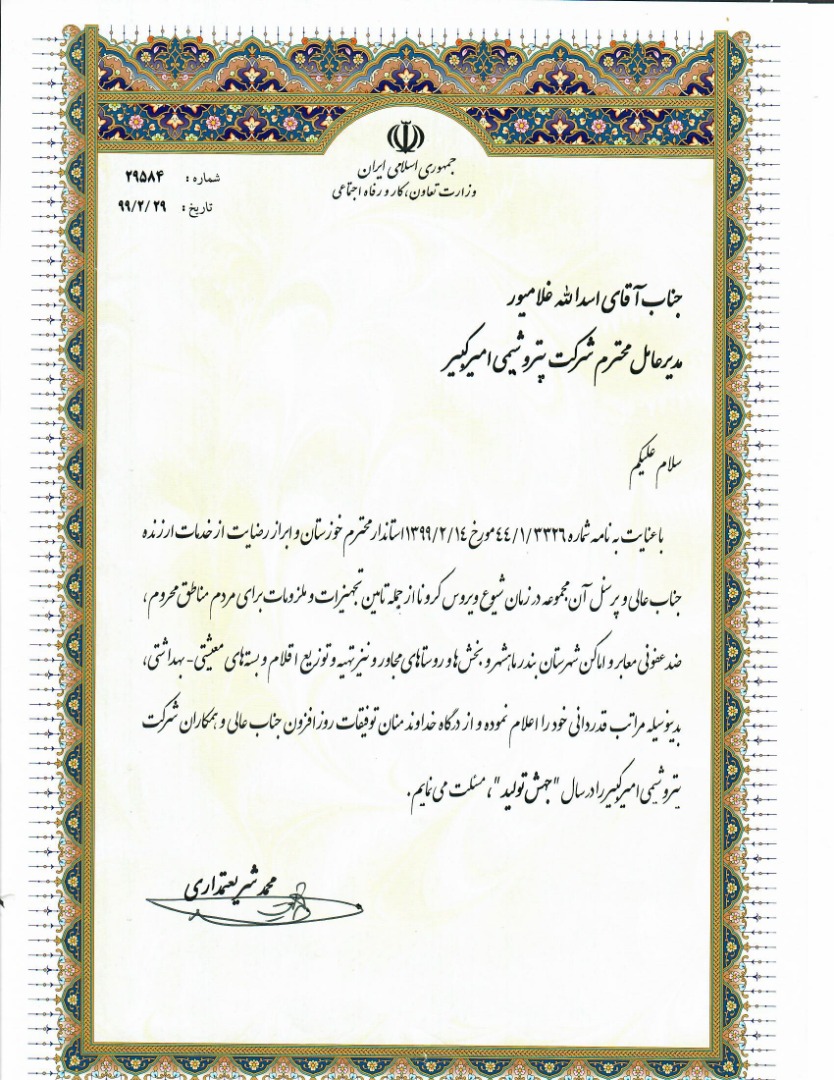 جمهوری اسلامی ایران
وزارت تعاون، کار و رفاه اجتماعی
شماره : ۲۹۵۸۴
تاریخ : ۹۹/۲/۲۹
جناب آقای اسدالله غلامپور
مدیرعامل محترم شرکت پتروشیمی امیرکبیر
سلام علیکم
با عنایت به نامه شماره ۴۴/۱/۳۳۲۶ مورخ ۱۳۹۹/۲/۱۴ استاندار محترم خوزستان و ابراز رضایت از خدمات ارزنده
جناب عالی و پرسنل آن مجموعه در زمان شیوع ویروس کرونا از جمله تامین تجهیزات و ملزومات برای مردم مناطق محروم ،
ضد عفونی معابر و اماکن شهرستان بندر ماهشهر و بخش ها و روستاهای مجاور و نیز تهیه و توزیع اقلام و بسته های معیشتی - بهداشتی،
بدینوسیله مراتب قدردانی خود را اعلام نموده و از درگاه خداوند منان توفیقات روز افزون جناب عالی و همکاران شرکت
پتروشیمی امیرکبیر را در سال "جهش تولید"، مسئلت می نمایم.
محمد شریعتمداری